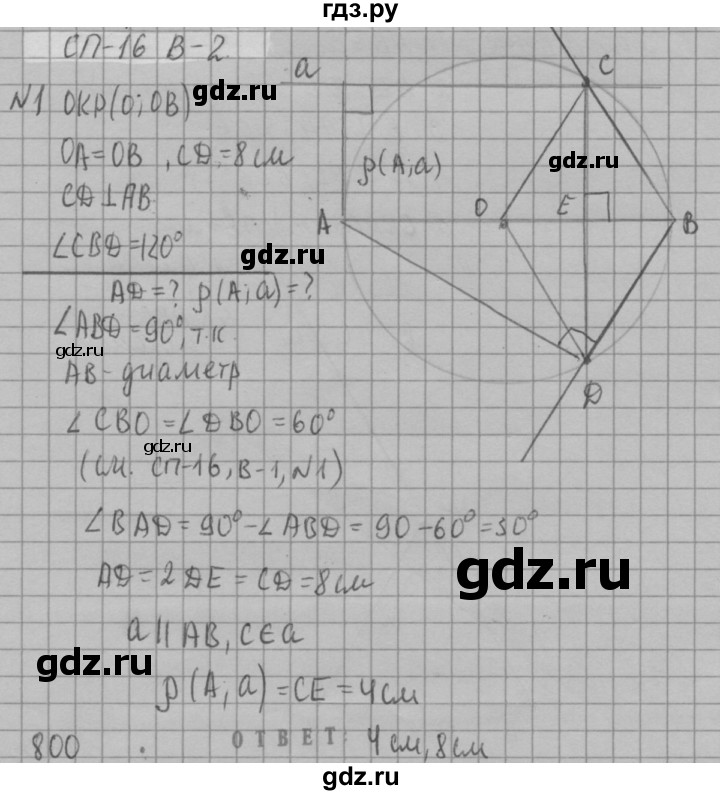 гдз.ру
СП-16 В-2
a
C
N1 ОКР(O; OB)
gdz.ru
OA=OB, CD=8 см
ρ(A;a)
gdz.ru
CD⊥AB
A
O
E
B
∠CBD=120°
gdz.ru
AD=? ρ(A;a)=?
∠ABD=90°, т.к.
gdz.ru
AB-диаметр
D
∠CBO=∠DBO=60°
gdz.ru
(см. СП-16, В-1, N1)
∠BAD=90°-∠ABD=90-60°=30°
AD=2DE=CD=8см
gdz.ru
a||AB, C∈a
gdz.ru
ρ(A,a)=CE=4см
800
ОТВЕТ: 4см, 8см
gdz.ru